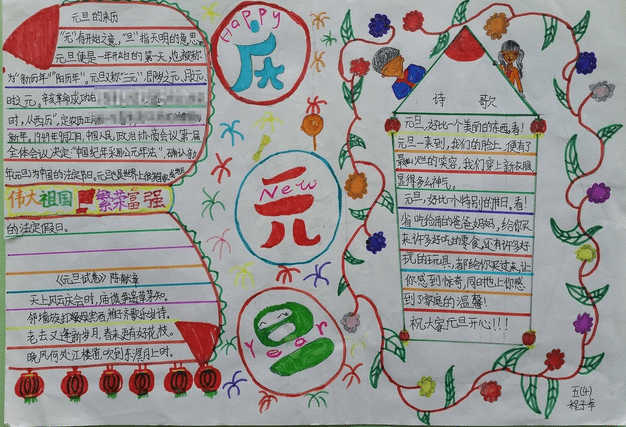 元旦的来历
"元"有开始之意,"旦"指天明的意思。
元旦便是一年开始的第一天,也被称
为"新历年""阳历年"。元旦又称"三元",即岁之元、月之元、
时之元。辛亥革命成功后
时,从西历",定
新年。1949年9月27日,中国人民政治协商会议第一届
全体会议决定"中国纪年采用公元年法",
年元旦为中国的法定节日。元旦
伟大祖国 繁荣富强
的法定假日。
《元旦试卷》陈献章
天上风云庆会时,庙谟争遗草茅知。
邻墙旋打娱宾酒,稚子齐歌乐岁诗。
老去又逢新岁月,春来更有好花枝。
晚风何处江楼笛,吹到东溟月上时。
Happy
庆
New
元
旦
Year
诗 歌
元旦,好比一个美丽的东西,看!
元旦一来到,我们的脸上,便有了
最灿烂的笑容,我们穿上新衣服,
显得多么神气。
元旦,好比一个特别的节日,看!
省吃俭用的爸爸妈妈,给你买
来许多好吃的零食,还有许多好
玩的玩具,都给你买过来,让
你感到惊奇,同时也让你感
到了家庭的温馨!
祝大家元旦开心!!!
五(4)
程子卓